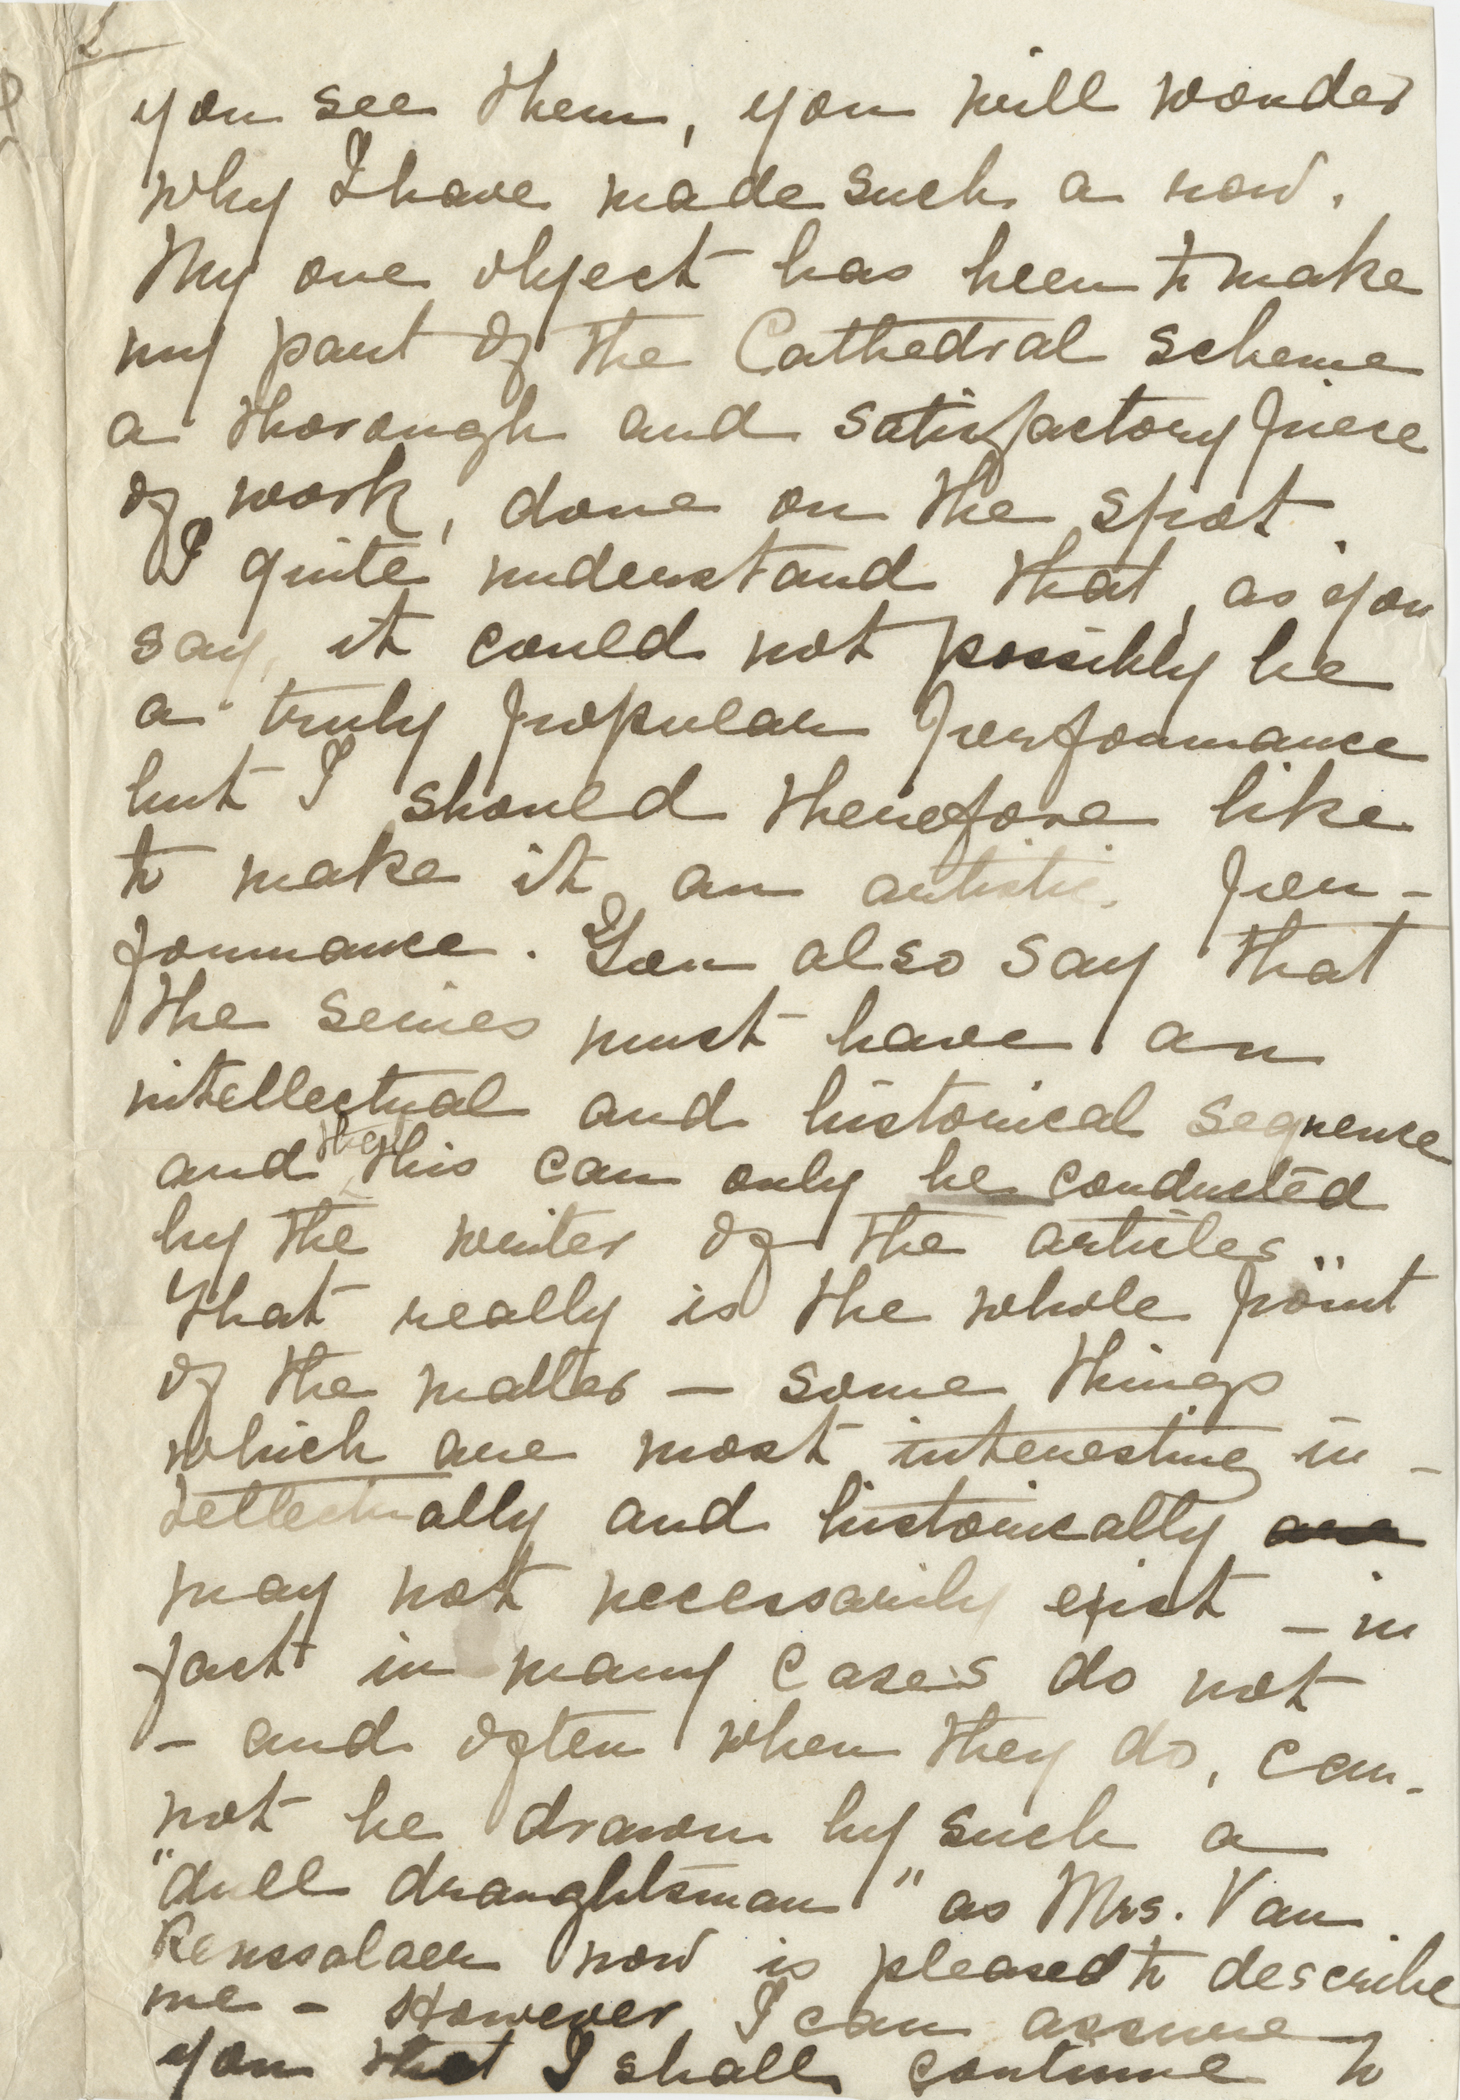 2
you see them, you will wonder
why I have made such a row.
My one object has been to make
my part of the Cathedral scheme
a thorough and satisfactory piece
of work, done on the spot.
I quite understand that, as you
say, it could not possibly be
a truly popular performance
but I should therefore like
to make it an artistic per-
formance. You also say that
the series must have an
intellectual and historical sequence
and that this can only be conducted
by the writer of the articles..
That really is the whole point
of the matter — some things
which are most interesting in-
tellectually and historically are
may not necessarily exist — in
fact in many cases do not
— and often when they do, can-
not be drawn by such a
"dull draughtsman" as Mrs. Van
Renssalaer now is pleased to describe
me — However I can assure
you that I shall continue to